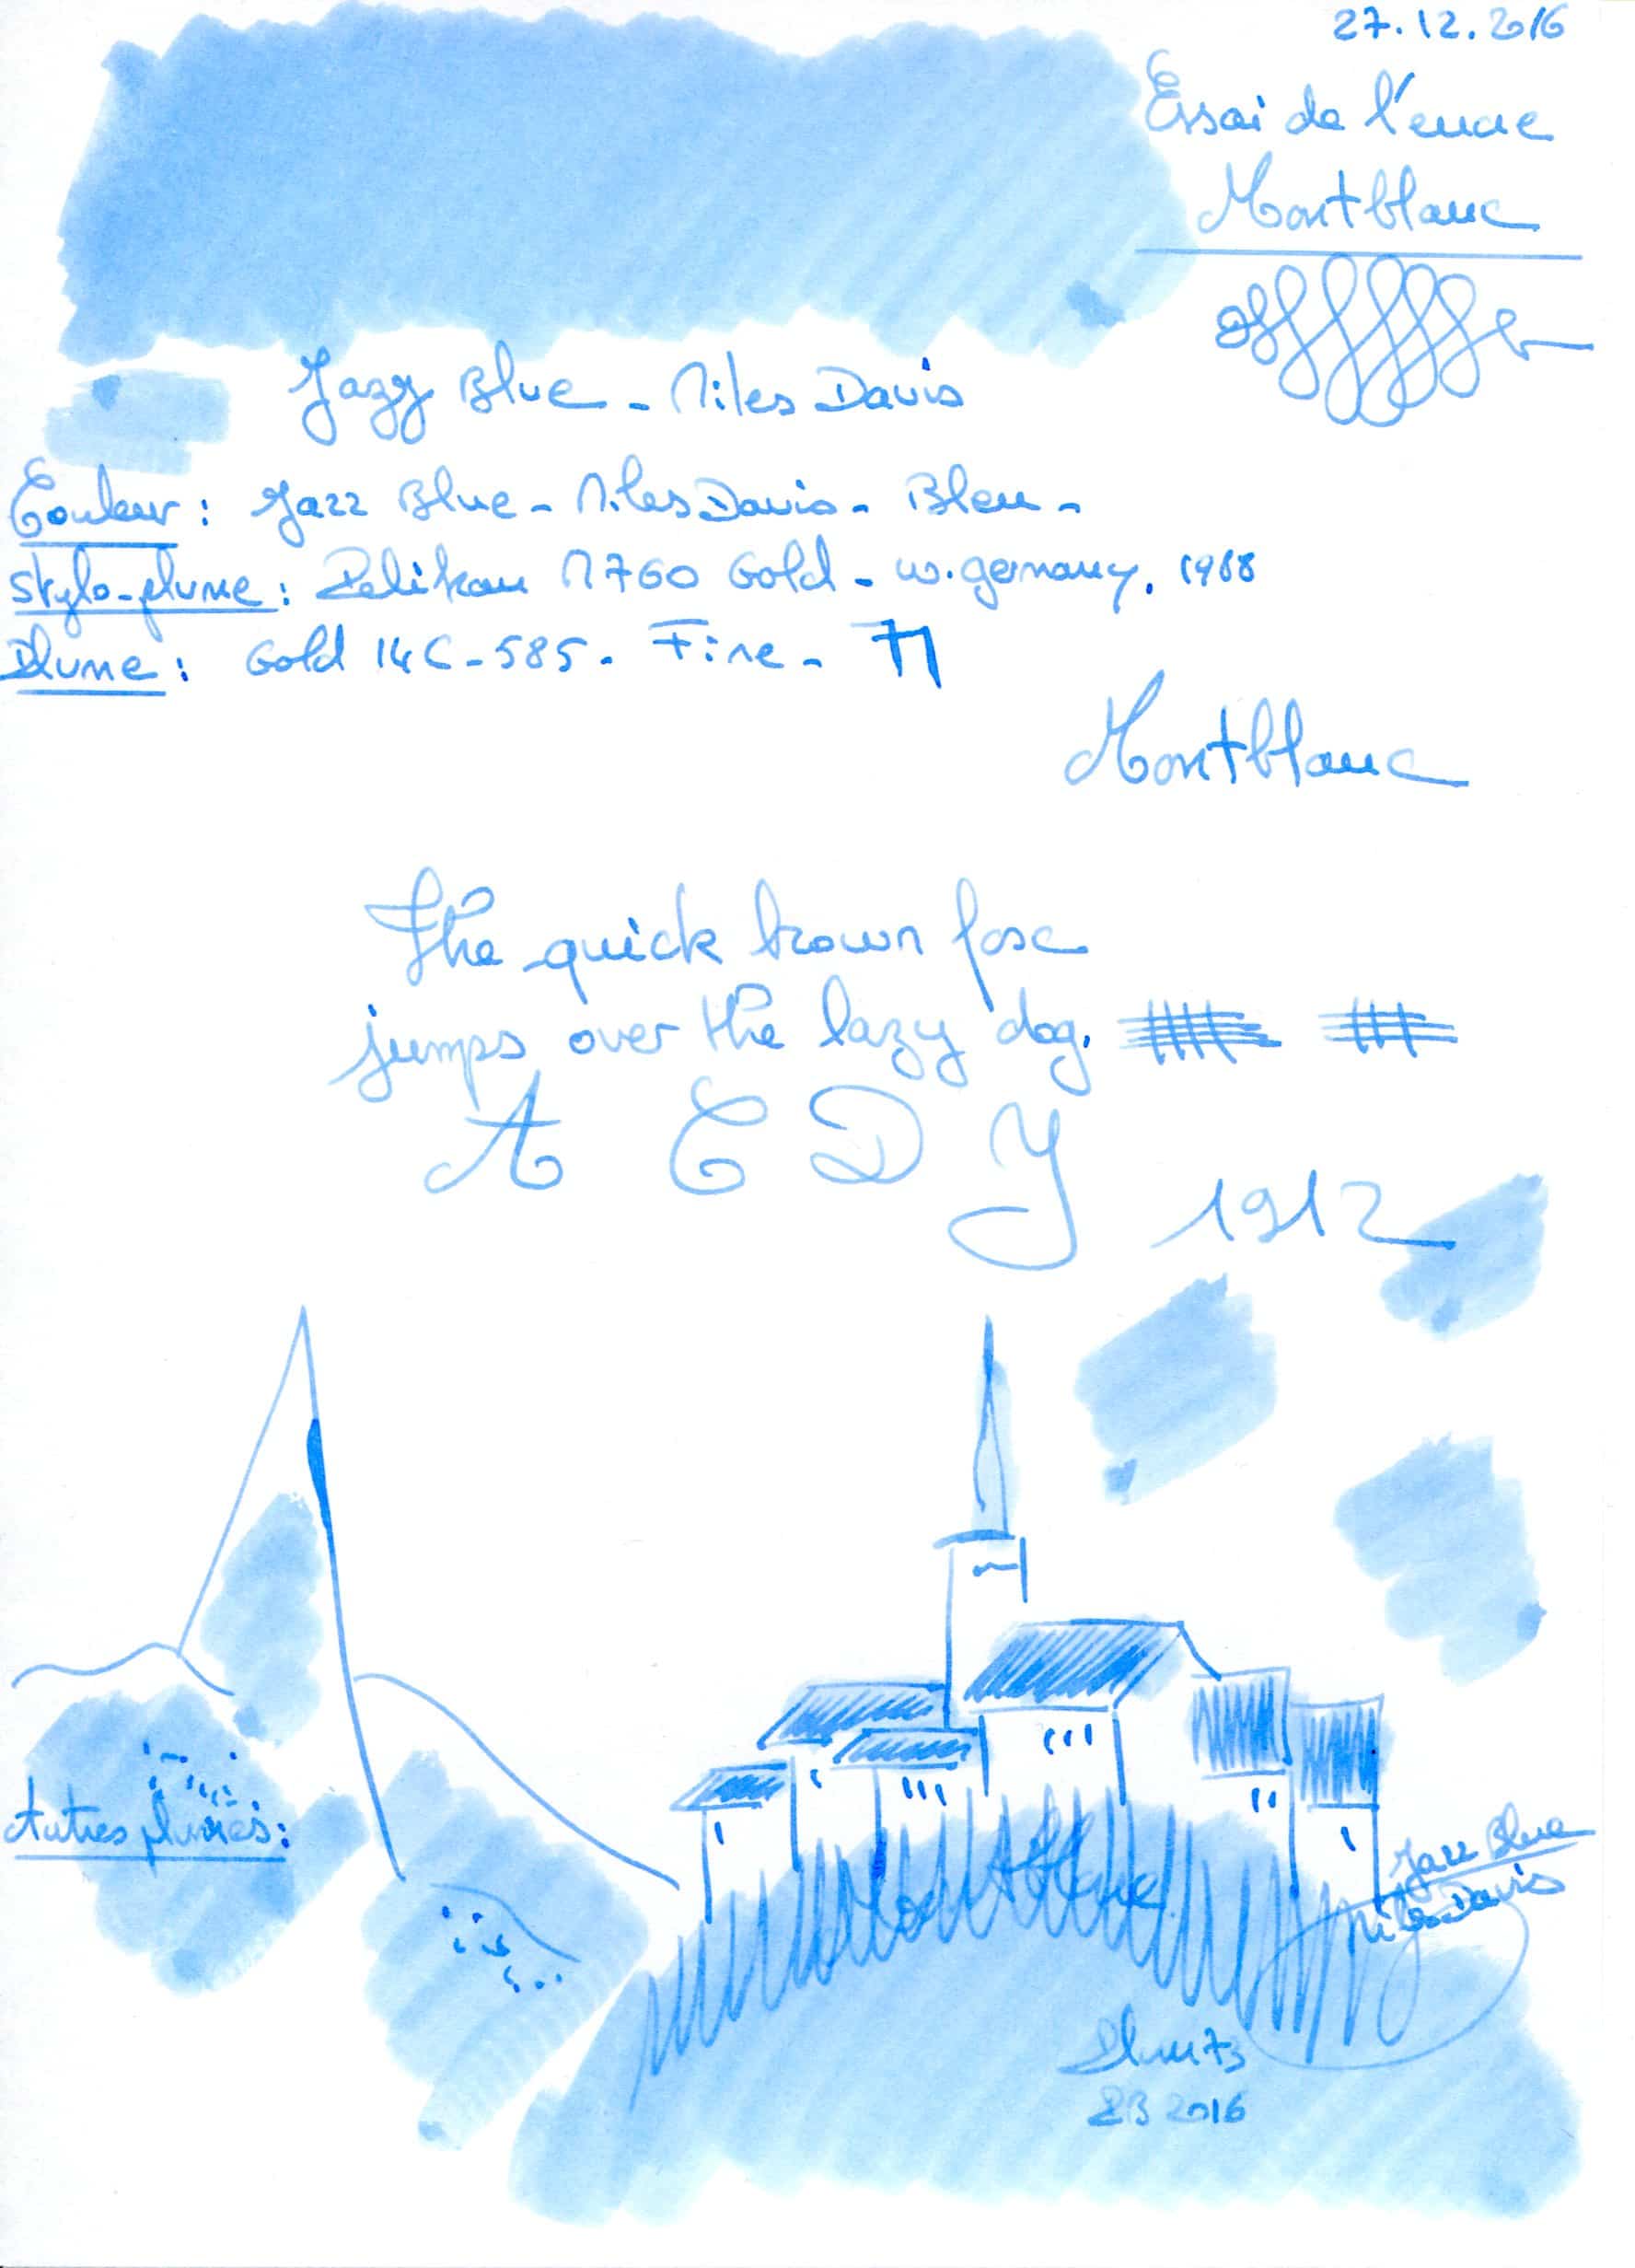 27.12.2016
Essai de l'encre
Montblanc
Jazz Blue - Miles Davis
Couleur : Jazz Blue - Miles Davis - Bleu -
Stylo-plume : Pelikan M760 Gold - W. Germany. 1988
Plume : Gold 14C-585. Fine -
Montblanc
The quick brown fox
jumps over the lazy dog.
A C D Y
1912
Autres plumes :
Jazz Blue
Miles Davis
Montblanc
2016